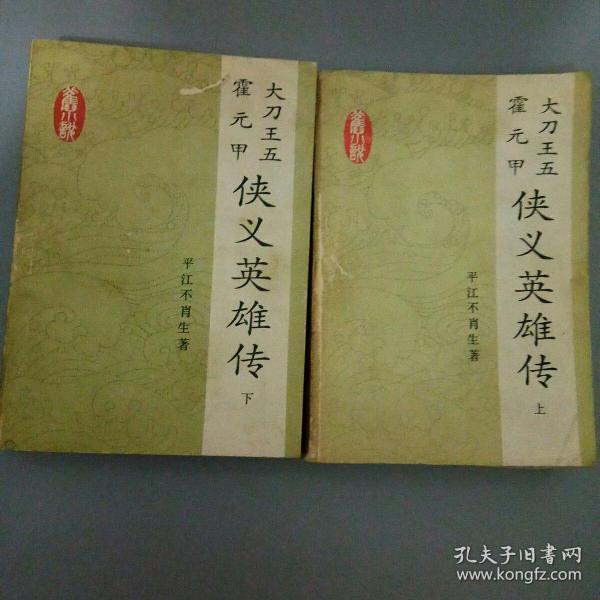 大刀王五
霍元甲
侠义英雄传
下
平江不肖生著
大刀王五
霍元甲
侠义英雄传
上
平江不肖生著
孔夫子旧书网
www.kongfz.com